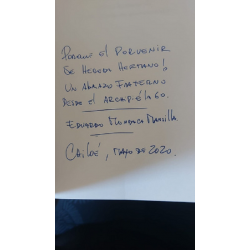 PORQUE EL PORVENIR
SE HEREDA HERMANO!,
UN ABRAZO FRATERNO
DESDE EL ARCHIPIÉLAGO.
EDUARDO MONDACA MANSILLA
CHILOÉ, MAYO DE 2020.